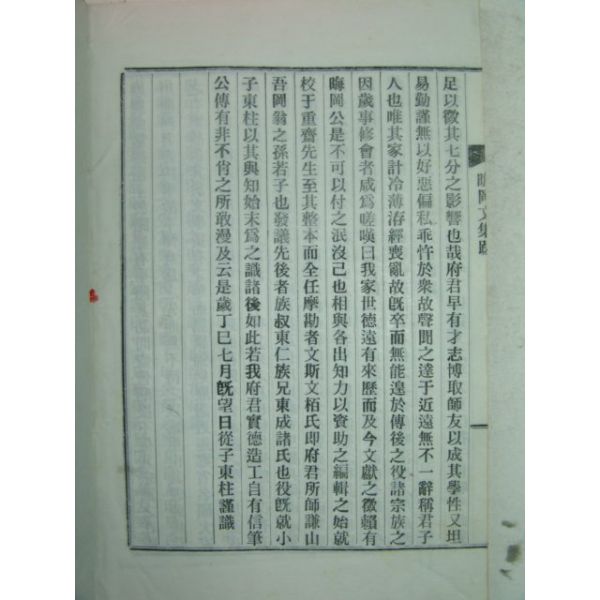 足以徵其七分之影響也哉府君早有才志博取師友以成其學性又坦
易勤謹無以好惡偏私乖忤於衆故聲聞之達于近遠無不一辭稱君子
人也唯其家計冷薄洊經喪亂故旣卒而無能遑於傳後之役諸宗族之
因歲事修會者咸爲嗟嘆曰我家世德遠有來歷而及今文獻之徵賴有
晦岡公是不可以付之泯沒已也相與各出知力以資助之編輯之始就
校于重齋先生至其整本而全任摩勘者文斯文栢氏卽府君所師謙山
吾岡翁之孫若子也發議先後者族叔東仁族兄東成諸氏也役旣就小
子東柱以其與知始末爲之識諸後如此若我府君實德造工自有信筆
公傳有非不肖之所敢漫及云是歲丁巳七月旣望日從子東柱謹識
晦岡文集跋